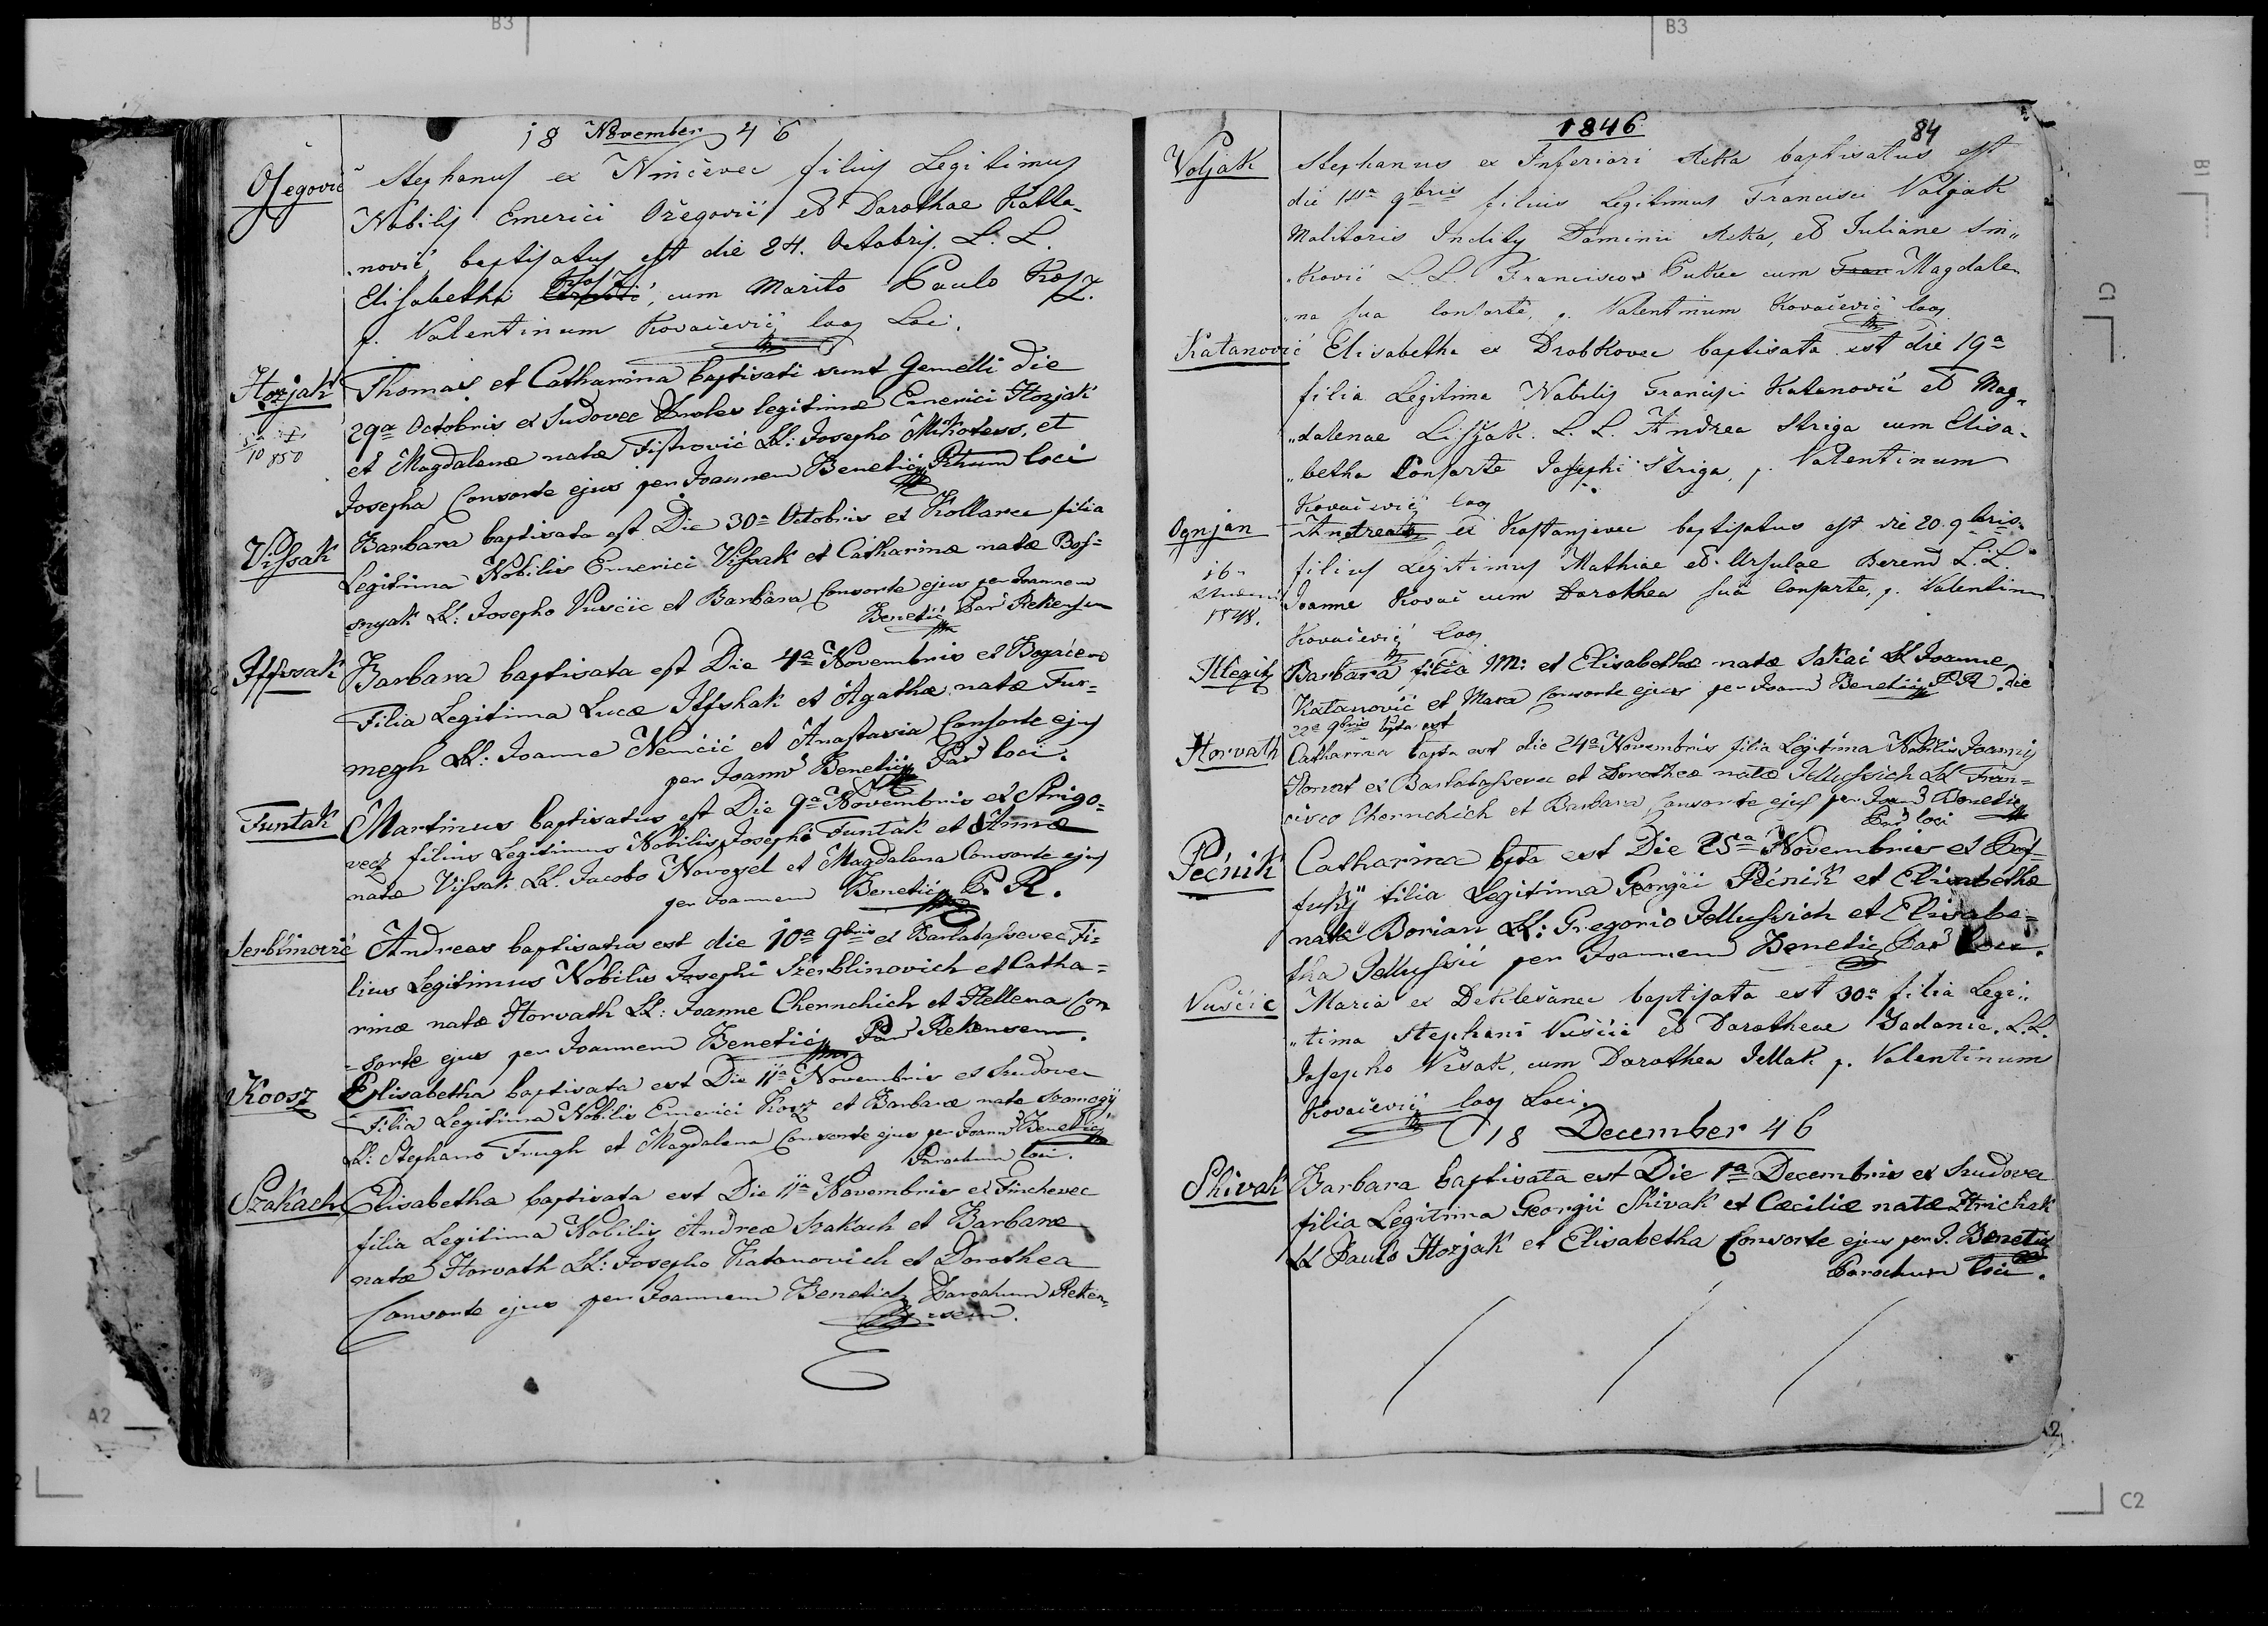 B3
B3
B1
C1
A2
C2
18 November 46
Osegović
Stephanus ex Ninčevec filius Legitimus
Nobilis Emerici Ožegović et Dorothae Katta-
nović, baptisatus est die 24. Octobris. L. L.
Elisabetha Kos, cum Marito Paulo Kosz.
p. Valentinum Kovačević Coop Loci.
Hozjak
Thomas et Catharina baptisati sunt Gemelli Die
29a Octobris ex Sudovec Proles legitimæ Emerici Hozjak
10 850
et Magdalenæ natæ Fistrović LL: Josepho Mikotess, et
Josepha Consorte ejus per Joannem Benetić Pchum loci
Vissak
Barbara baptisata est Die 30a Octobris ex Kollarec filia
Legitima Nobilis Emerici Vissak et Catharinæ natæ Bos=
snyak LL: Josepho Vusčic et Barbara Consorte ejus per Joannem
Benetić Par Rekensem
Iffssak
Barbara baptisata est Die 4a Novembris ex Bogačevo
Filia Legitima Lucæ Iffshak et Agathæ natæ Fur=
megh LL: Joanne Nemčić et Anastasia Consorte ejus
per Joannem Benetić Par loci.
Funtak
Martinus baptisatus est Die 9a Novembris ex Strigo=
vecz filius Legitimus Nobilis Josephi Funtak et Annæ
natæ Vissak LL. Jacobo Novozel et Magdalena Consorte ejus
per Joannem Benetić P. R.
Serblinović
Andreas baptisatus est die 10a 9bris ex Barlabassevec Fi=
lius Legitimus Nobilis Josephi Szerblinovich et Catha=
rinæ natæ Horvath LL: Joanne Chernchich et Hellena Con
=sorte ejus per Joannem Benetić Par Rekensem.
Koosz
Elisabetha baptisata est Die 11a Novembris ex Szudovec
Filia Legitima Nobilis Emerici Kosz et Barbaræ nata Somogÿ
LL: Stephano Frugh et Magdalena Consorte ejus per Joann Benetić
Parochum loci.
Szakach
Elisabetha baptisata est Die 11a Novembris ex Finchevec
filia Legitima Nobilis Andreæ Szakach et Barbaræ
natæ Horvath LL: Josepho Katanovich et Dorothea
Consorte ejus per Joannem Benetich Parochum Reken=
sem.
1846
84
Voljak
Stephanus ex Inferiori Reka baptisatus est
die 14a 9bris filius Legitimus Francisci Voljak
Molitoris Inclity Dominii Reka, et Juliane Sin„
„ković L. L. Francisco Putrec cum Fran Magdale„
„na sua Consorte, p. Valentinum Kovačević Coop
Katanović
Elisabetha ex Drobkovec baptisata est die 19a
filia Legitima Nobilis Francisci Katanović et Mag„
„dalenae Lissjak. L. L. Andrea Striga cum Elisa„
„betha Consorte Josephi Striga, p. Valentinum
Kovačević Coop
Ognjan
Andreas ex Kostanjevec baptisatus est die 20. 9bris.
16
1848.
filius Legitimus Mathiae et Ursulae Berend L. L.
Joanne Kovač cum Dorothea sua Consorte, p. Valentinum
Kovačević Coop
Illegit
Barbara filia M: et Elisabethæ natæ Sakać LL Joanne
Katanović et Mara Consorte ejus per Joan Benetić P R. die
22a 9bris bpta est
Horvath
Catharina bapta est die 24a Novembris filia Legitima Nobilis Joannis
Horvat ex Barlabassevec et Dorotheæ natæ Jellussich LL Fran=
cisco Chernchich et Barbara Consorte ejus per Joan Benetić
Par loci
Pećnik
Catharina bpta est Die 25a Novembris ex
filia Legitima Georgii Pećnik et Elisabethæ
natæ Borian LL: Gregorio Jellussich et Elisabe=
tha Jellussić per Joannem Benetić Par loci.
Vusčic
Maria ex Deklešanec baptisata est 30a filia Legi„
„tima Stephani Vuščić et Dorotheae Zadanic. L.L.
Josepho Višak, cum Dorothea Jellak p. Valentinum
Kovačević Coop Loci.
18 December 46
Shivak
Barbara baptisata est Die 1a Decembris ex Szudovec
filia Legitima Georgii Shivak et Cæciliæ natæ Hrichak
LL Paulo Hozjak et Elisabetha Consorte ejus per J. Benetić
Parochum loci.